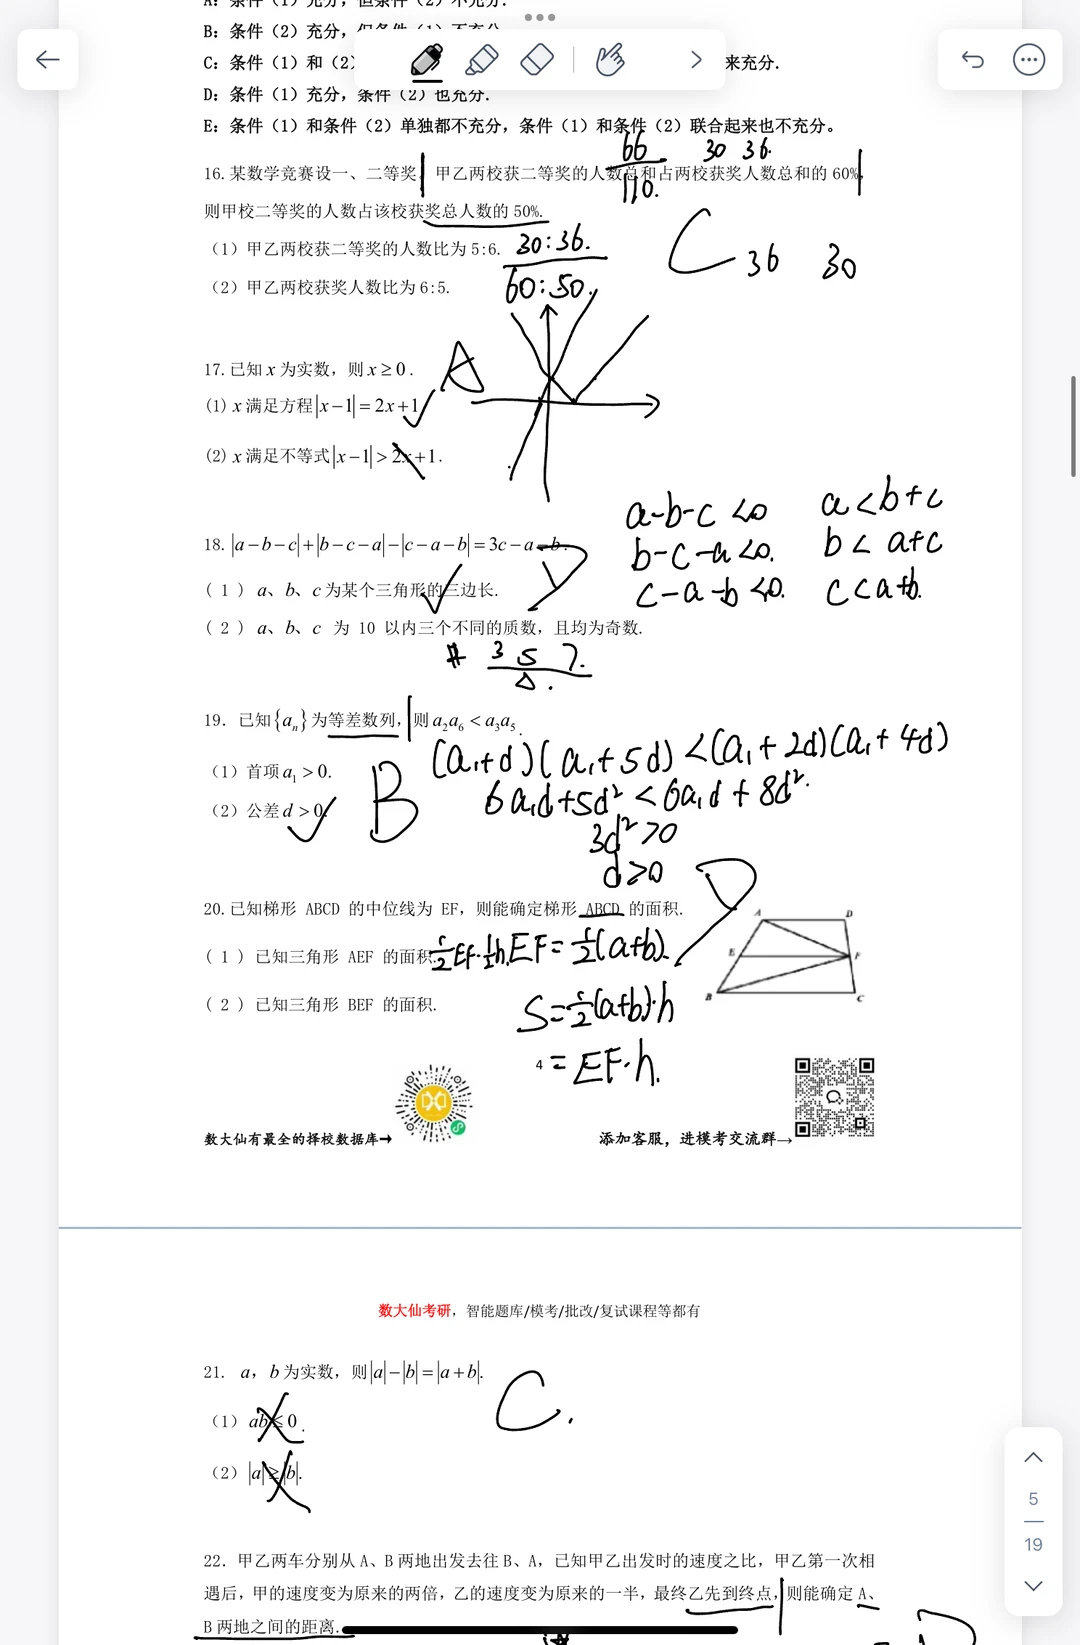 A：条件（1）充分，但条件（2）不充分.
B：条件（2）充分，但条件（1）不充分
C：条件（1）和（2） 来充分.
D：条件（1）充分，条件（2）也充分.
E：条件（1）和条件（2）单独都不充分，条件（1）和条件（2）联合起来也不充分。
66
110.
30 36.
16.某数学竞赛设一、二等奖，甲乙两校获二等奖的人数总和占两校获奖人数总和的 60%，
则甲校二等奖的人数占该校获奖总人数的 50%.
（1）甲乙两校获二等奖的人数比为 5:6.
30:36.
C 36 30
（2）甲乙两校获奖人数比为 6:5.
60:50.
17.已知 x 为实数，则 x≥0.
A
(1) x 满足方程|x−1|=2x+1
(2) x 满足不等式|x−1|>2x+1.
a-b-c<0 a<b+c
18. |a−b−c|+|b−c−a|−|c−a−b|=3c−a−b.
D
b-c-a<0. b<a+c
（1）a、b、c为某个三角形的三边长.
c-a-b<0. c<a+b.
（2）a、b、c 为 10 以内三个不同的质数，且均为奇数.
3 5 7.
19. 已知{aₙ}为等差数列，则a₂a₆<a₃a₅.
(a₁+d)(a₁+5d)<(a₁+2d)(a₁+4d)
（1）首项a₁>0.
B
6a₁d+5d²<6a₁d+8d².
（2）公差d>0.
3d²>0
d>0
D
20.已知梯形 ABCD 的中位线为 EF，则能确定梯形 ABCD 的面积.
A D
（1）已知三角形 AEF 的面积.
½EF·½h. EF=½(a+b).
E F
（2）已知三角形 BEF 的面积.
B C
S=½(a+b)·h
4
=EF·h.
数大仙有最全的择校数据库→
添加客服，进模考交流群→
数大仙考研，智能题库/模考/批改/复试课程等都有
21. a，b为实数，则|a|−|b|=|a+b|.
C.
（1）ab≤0.
（2）|a|≥|b|.
5
19
22. 甲乙两车分别从 A、B 两地出发去往 B、A，已知甲乙出发时的速度之比，甲乙第一次相
遇后，甲的速度变为原来的两倍，乙的速度变为原来的一半，最终乙先到终点，则能确定 A、
B 两地之间的距离.